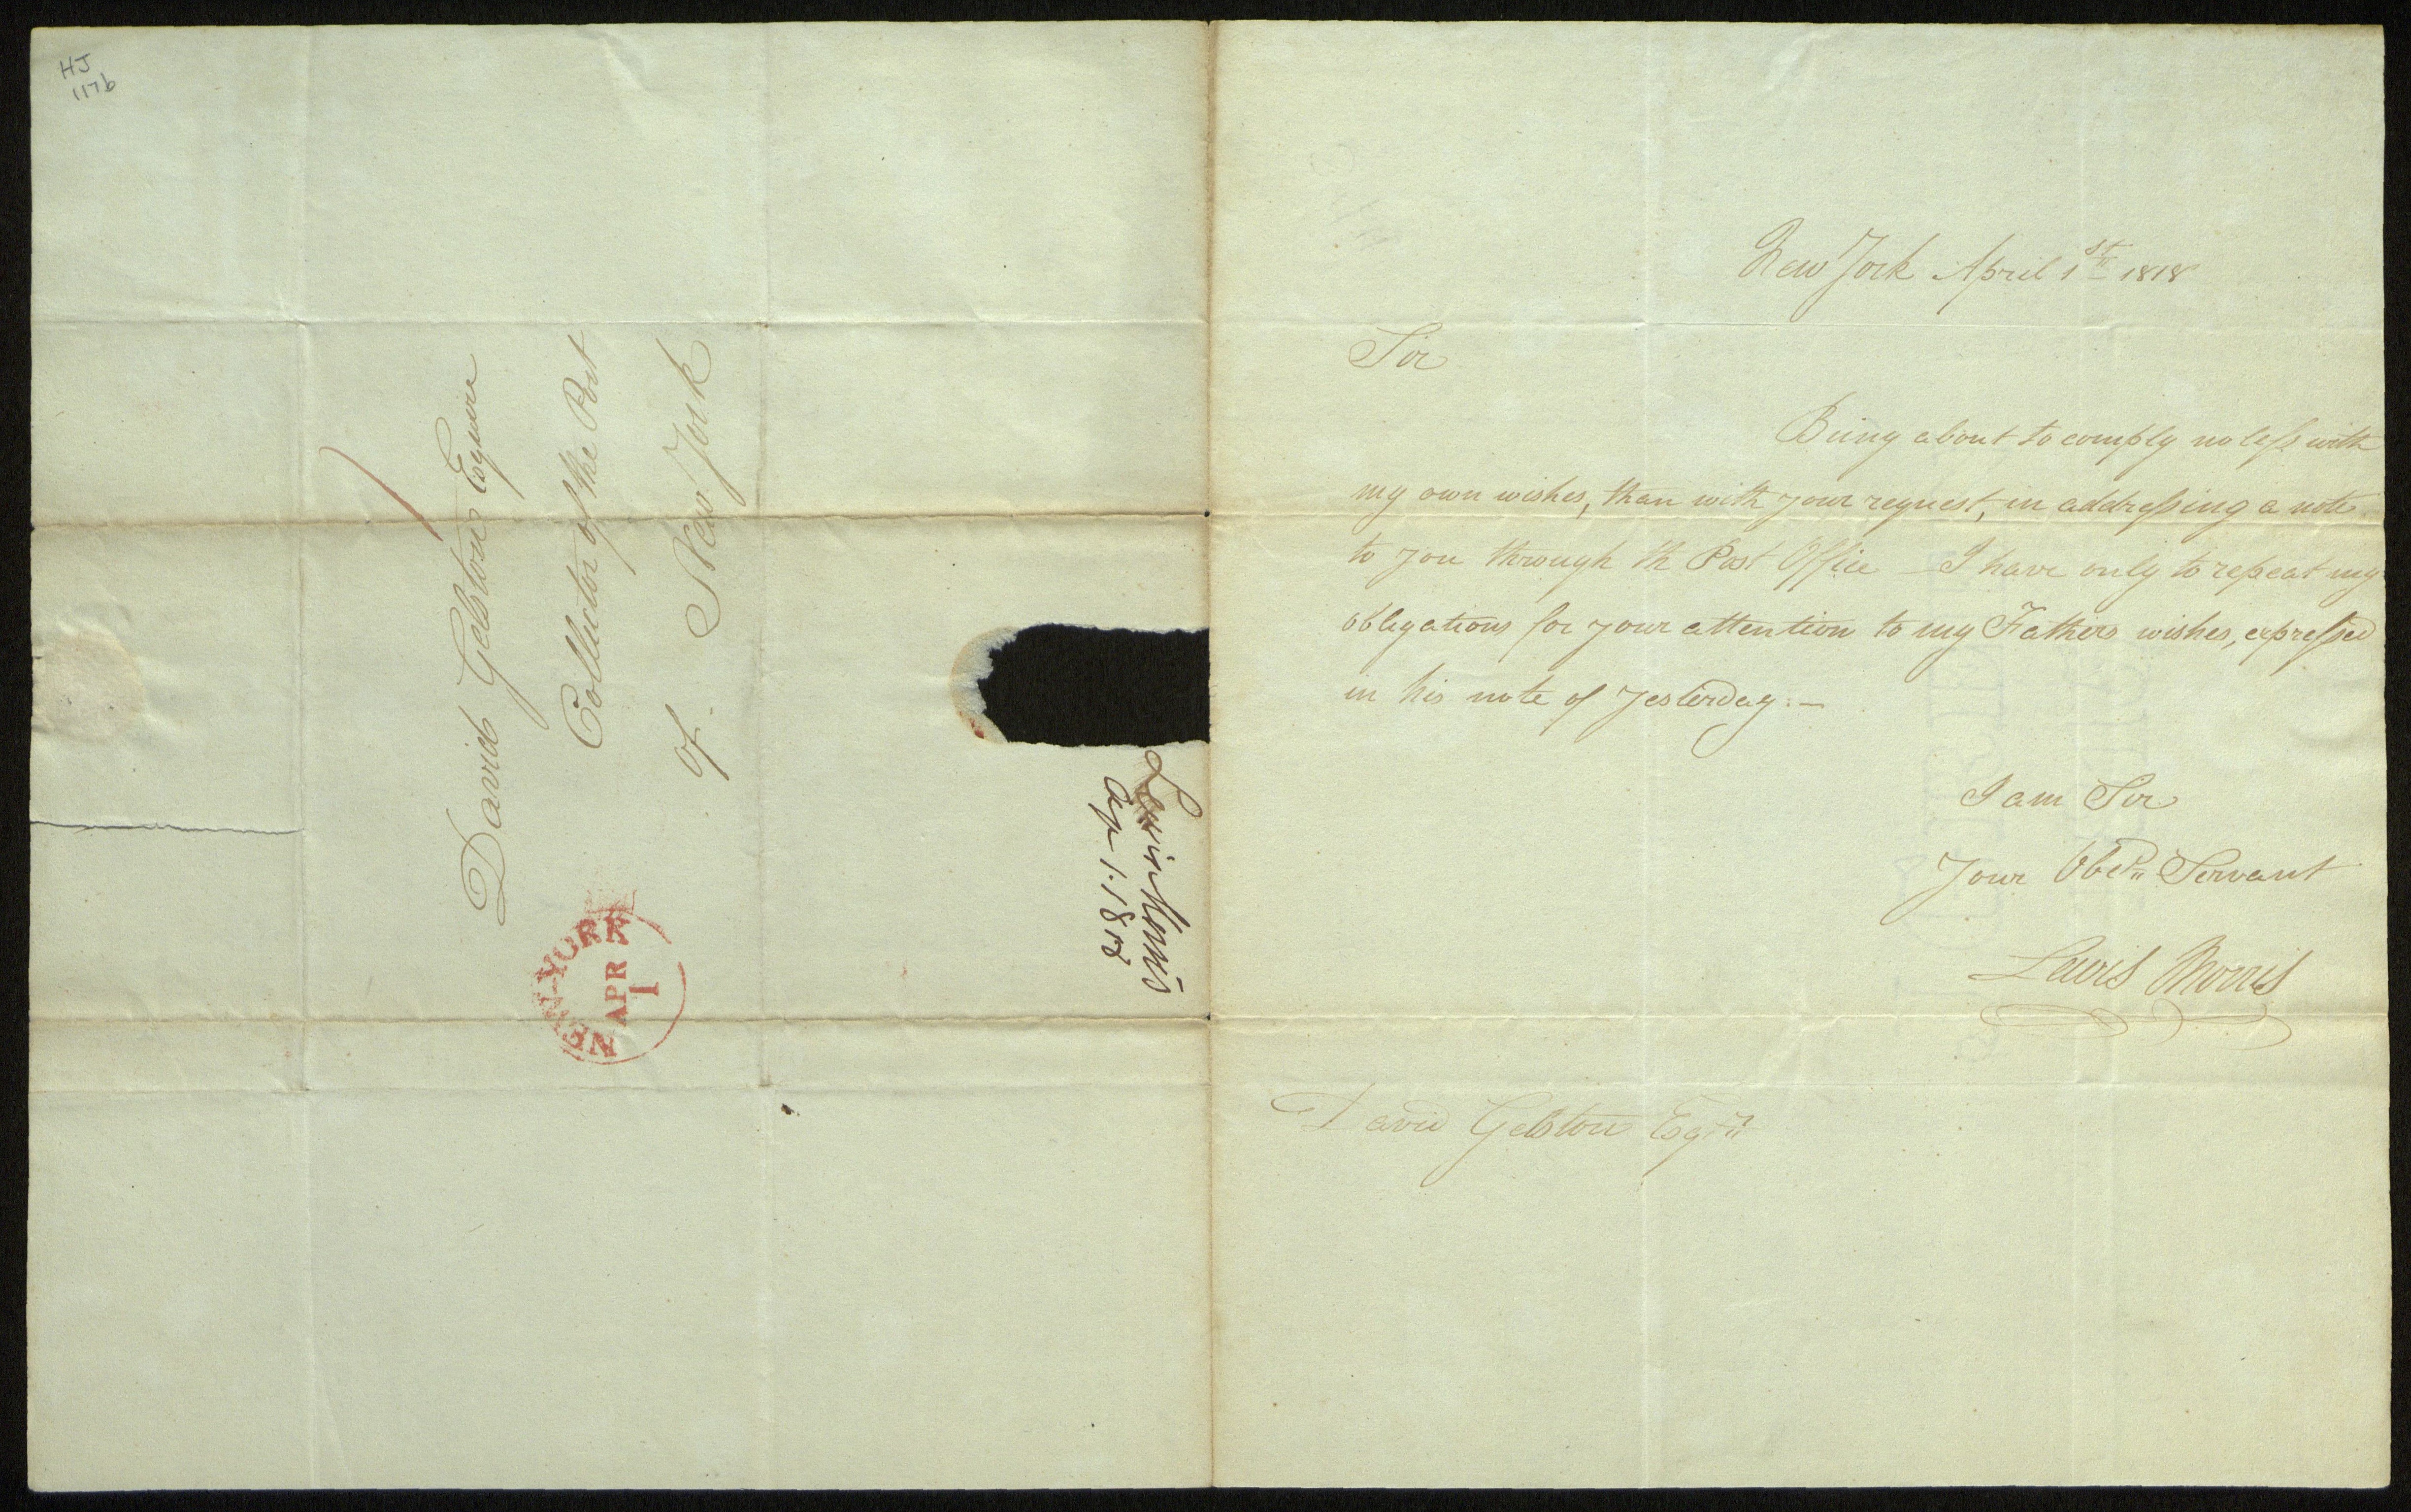 HJ
1176
David Gelston Esquire
Collector of the Port
of New York
NEW-YORK
APR
1
Lewis Morris
Ap 1. 1818
New York April 1st 1818
Sir
Being about to comply no less with
my own wishes, than with your request, in addressing a note
to you through th Post Office _ I have only to repeat my
obligations for your attention to my Fathers wishes, expressed
in his note of yesterday. —
I am Sir
Your Obedt Servant
Lewis Morris
David Gelston Esqr